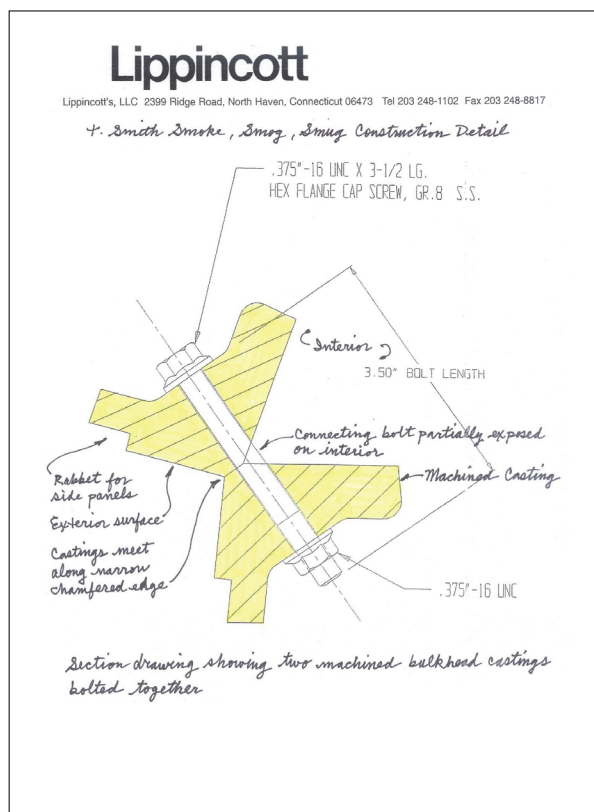 Lippincott
Lippincott's, LLC 2399 Ridge Road, North Haven, Connecticut 06473 Tel 203 248-1102 Fax 203 248-8817
T. Smith Smoke, Smog, Smug Construction Detail
.375"-16 UNC X 3-1/2 LG.
HEX FLANGE CAP SCREW, GR.8 S.S.
Interior
3.50" BOLT LENGTH
Connecting bolt partially exposed
on interior
Machined Casting
Rabbet for
side panels
Exterior surface
Castings meet
along narrow
chamfered edge
.375"-16 UNC
Section drawing showing two machined bulkhead castings
bolted together